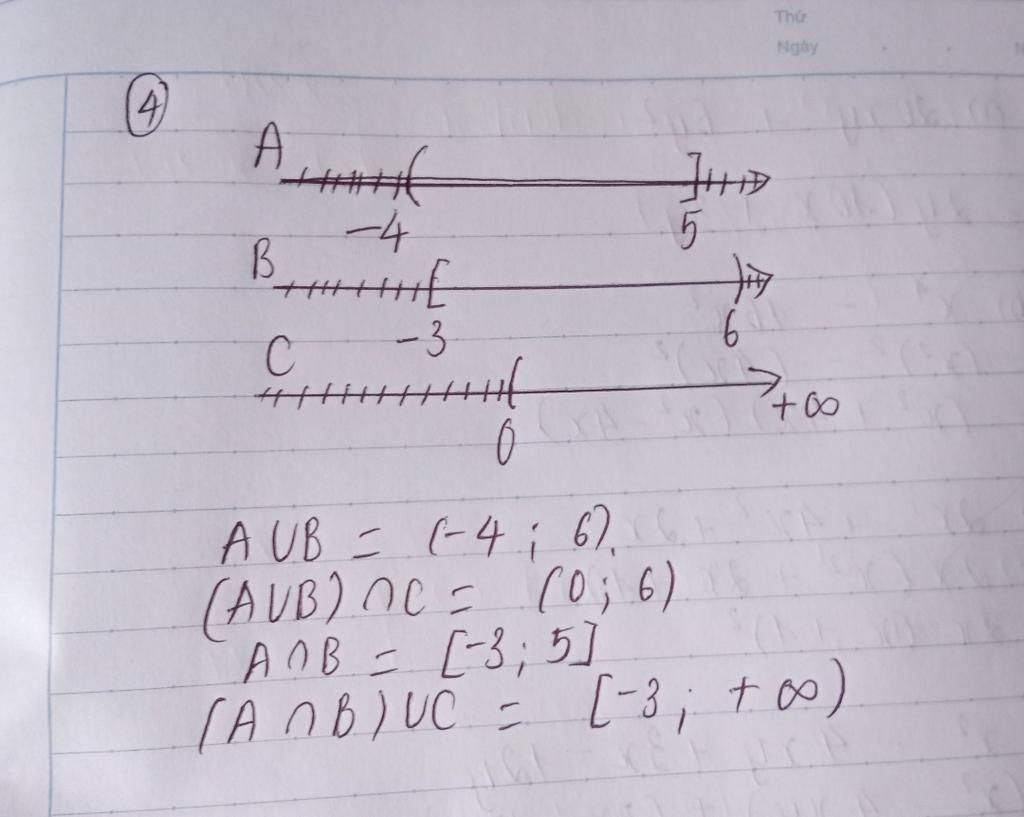 Thứ
Ngày
4
A
-4 5
B
-3 6
C
0 +∞
A∪B = (-4; 6).
(A∪B)∩C = (0; 6)
A∩B = [-3; 5]
(A∩B)∪C = [-3; +∞)